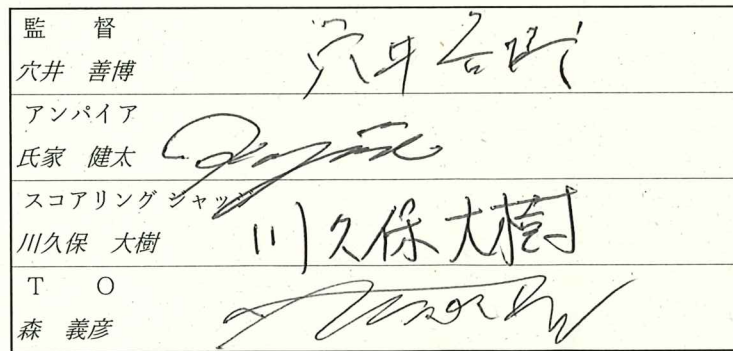 監　督
穴井　善博
穴井
アンパイア
氏家　健太
スコアリングジャッジ
川久保　大樹
川久保大樹
Ｔ　Ｏ
森　義彦